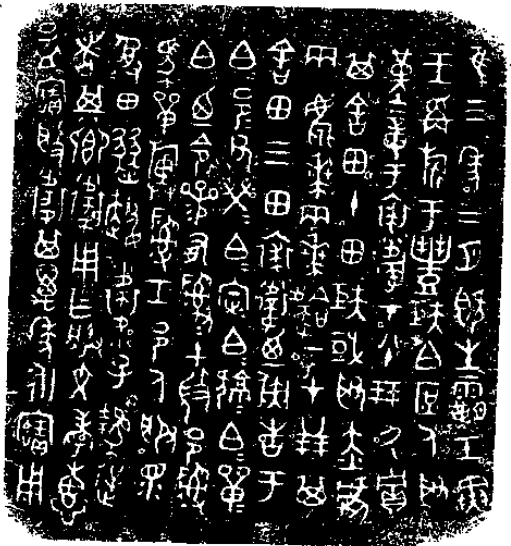 隹三年三月既生霸壬寅
王爯旂于豐矩白庶人取
堇章于裘衛才八十朋氒貯
其舍田十田矩或取赤虎
兩麀𠦪兩𠦪韐一才廿朋其
舍田三田裘衛廼彘告于
白邑父榮白定白𤞷白單
白廼令參有𤔲𤔲土微邑𤔲
馬單旟𤔲工邑人服眔
受田燹趞衛小子逆
者其鄉衛用乍朕文考惠
孟寶般衛其萬年永寶用